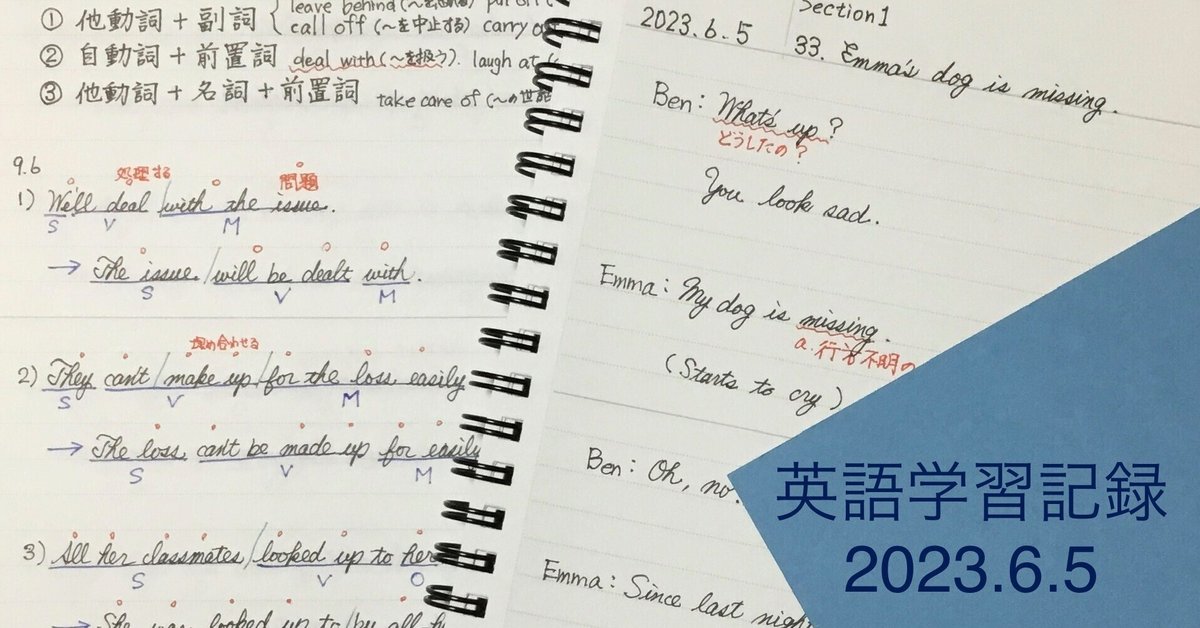 ① 他動詞 + 副詞
leave behind put off
call off (〜を中止する) carry
② 自動詞 + 前置詞 deal with (〜を扱う). laugh at
③ 他動詞 + 名詞 + 前置詞 take care of (〜の世話
9.6
処理する 問題
1) We'll deal / with the issue.
S V M
→ The issue / will be dealt with.
S V M
埋め合わせる
2) They can't / make up / for the loss easily
S V M
→ The loss can't be made up for easily
S V M
3) All her classmates / looked up to her
S V O
→ She was looked up to / by all h
2023.6.5
Section 1
33. Emma's dog is missing.
Ben: What's up?
どうしたの?
You look sad.
Emma: My dog is missing.
a. 行方不明の
(Starts to cry)
Ben: Oh, no.
Emma: Since last night
英語学習記録
2023.6.5